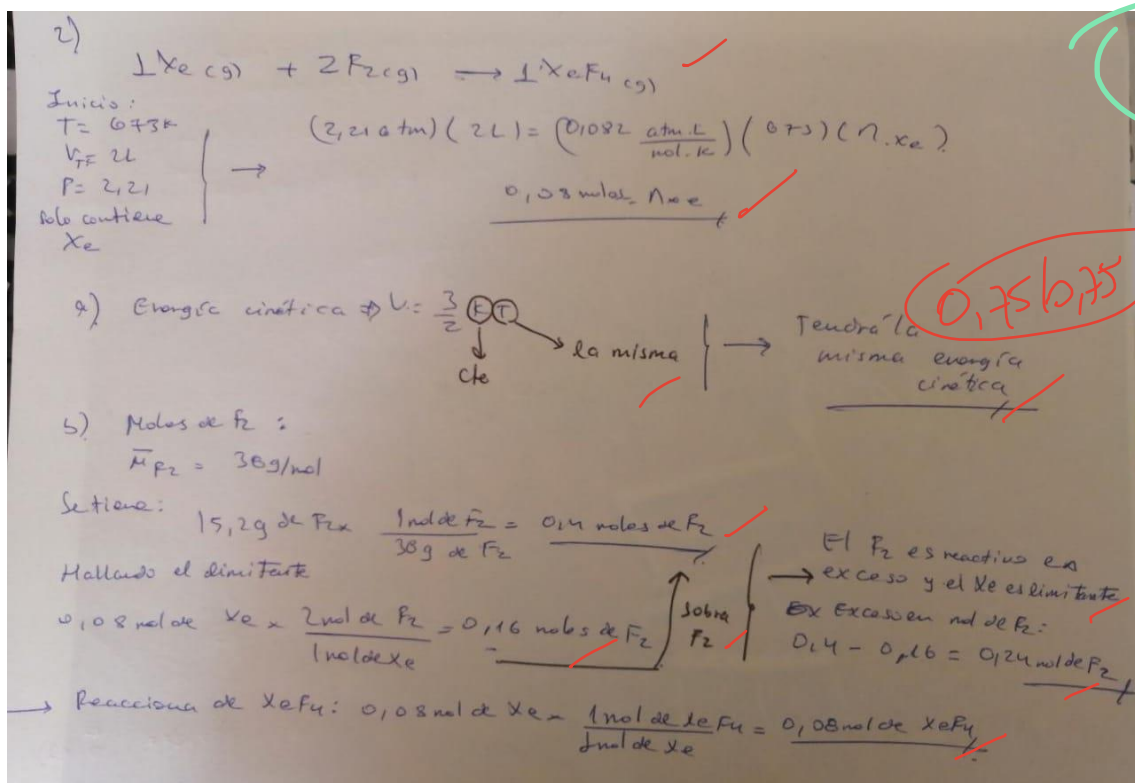 2)
1Xe(g) + 2F2(g) → 1XeF4(g)
Inicio:
T= 673K
VT= 2L
P= 2,21
solo contiene
Xe
→ (2,21 atm)(2L) = (0,082 atm.L/mol.K)(673)(n.xe)
0,08 moles = nxe
a) Energía cinética ⇒ U = 3/2 K T
cte
la misma
→ Tendrá la
misma energía
cinética
0,75/0,75
b) Moles de F2 :
M̄F2 = 38g/mol
Se tiene:
15,2g de F2 x 1mol de F2/38g de F2 = 0,4 moles de F2
Hallando el limitante
0,08 mol de Xe x 2mol de F2/1mol de Xe = 0,16 moles de F2
sobra
F2
→ El F2 es reactivo en
exceso y el Xe es limitante
Exceso en mol de F2:
0,4 - 0,16 = 0,24 mol de F2
→ Reacciona de XeF4: 0,08 mol de Xe x 1mol de XeF4/1mol de Xe = 0,08 mol de XeF4